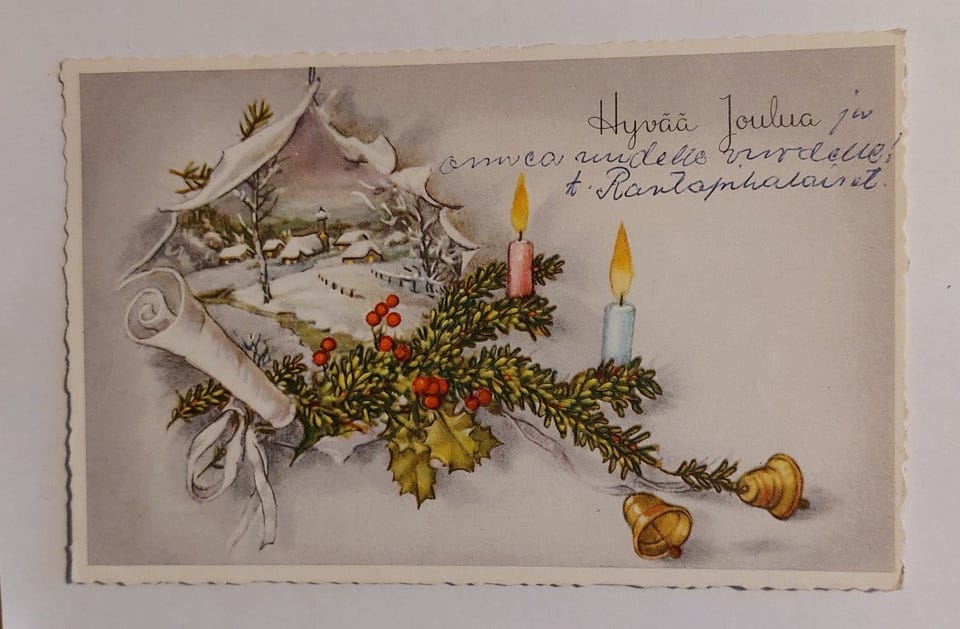 Hyvää Joulua ja
onnea uudelle vuodelle!
t. Rantapihalaiset.